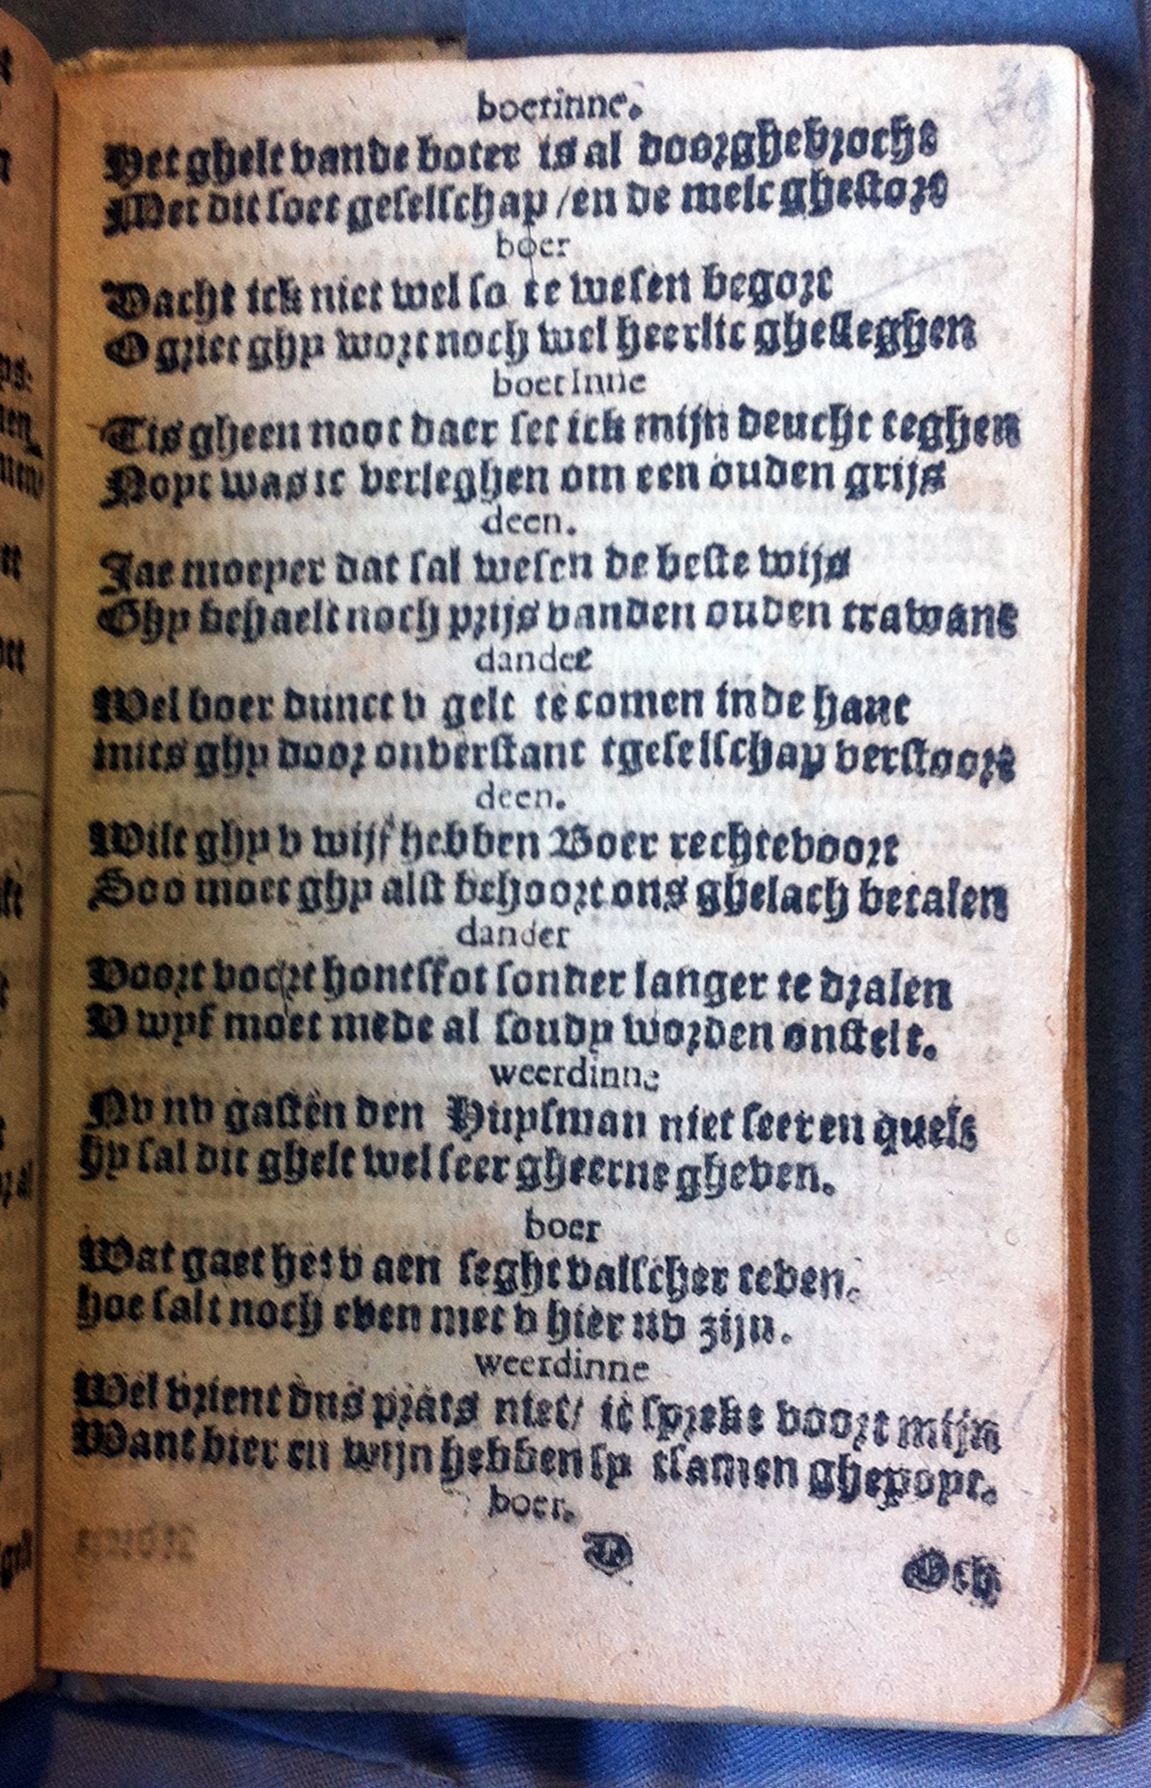 boerinne.
Het ghelt vande boter is al doorghebrocht
Met dit soet geselschap /en de melc ghestort
boer
Dacht ick niet wel so te wesen begort
O griet ghy wort noch wel heerlic ghesleghen
boerinne
Tis gheen noot daer set ick mijn deucht teghen
Noyt was ic verleghen om een ouden grijs
deen.
Jae moeyer dat sal wesen de beste wijs
Ghy behaelt noch prijs vanden ouden trawant
dander
Wel boer dunct v gelt te comen inde hant
mits ghy door onverstant tgeselschap verstoort
deen.
Wilt ghy v wijf hebben Boer rechtevoort
Soo moet ghy alst behoort ons ghelach betalen
dander
Voort voort hontsfot sonder langer te dralen
V wyf moet mede al soudy worden ontstelt.
weerdinne
Nv nv gasten den Huysman niet seer en quelt
hy sal dit ghelt wel seer gheerne gheven.
boer
Wat gaet het v aen seght valscher teven.
hoe salt noch even met v hier nv zijn.
weerdinne
Wel vrient dus prats niet/ ic spreke voort mijn
Want bier en wijn hebben sy tsamen ghepoyt.
boer.
D
Och